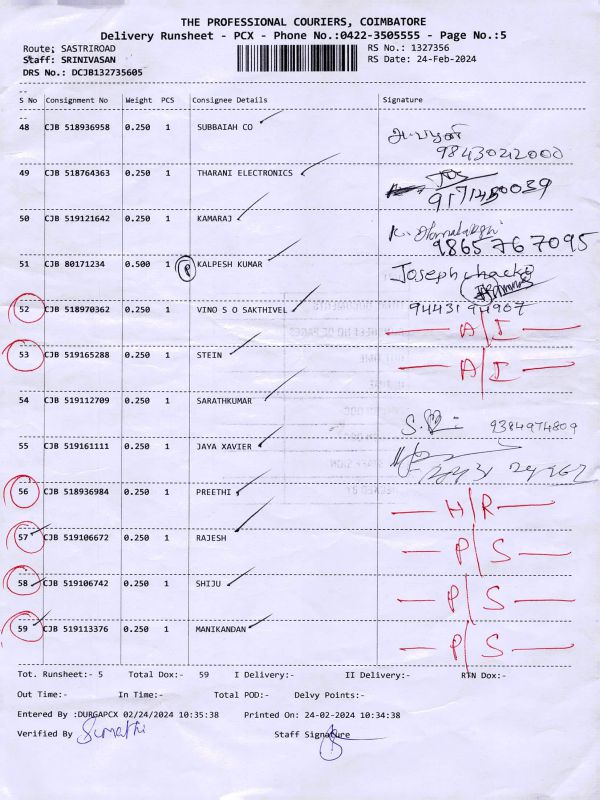 THE PROFESSIONAL COURIERS, COIMBATORE
Delivery Runsheet - PCX - Phone No.:0422-3505555 - Page No.:5
Route: SASTRIROAD RS No.: 1327356
Staff: SRINIVASAN RS Date: 24-Feb-2024
DRS No.: DCJB132735605
S No Consignment No Weight PCS Consignee Details Signature
48 CJB 518936958 0.250 1 SUBBAIAH CO
98430212000
49 CJB 518764363 0.250 1 THARANI ELECTRONICS
9171450039
50 CJB 519121642 0.250 1 KAMARAJ
9865767095
51 CJB 80171234 0.500 1 P KALPESH KUMAR Joseph chacko
94431 94907
52 CJB 518970362 0.250 1 VINO S O SAKTHIVEL A/I
53 CJB 519165288 0.250 1 STEIN A/I
54 CJB 519112709 0.250 1 SARATHKUMAR 9384974809
55 CJB 519161111 0.250 1 JAYA XAVIER
56 CJB 518936984 0.250 1 PREETHI H/R
57 CJB 519106672 0.250 1 RAJESH P/S
58 CJB 519106742 0.250 1 SHIJU P/S
59 CJB 519113376 0.250 1 MANIKANDAN P/S
Tot. Runsheet:- 5 Total Dox:- 59 I Delivery:- II Delivery:- RTN Dox:-
Out Time:- In Time:- Total POD:- Delvy Points:-
Entered By :DURGAPCX 02/24/2024 10:35:38 Printed On: 24-02-2024 10:34:38
Verified By Sumathi Staff Signature